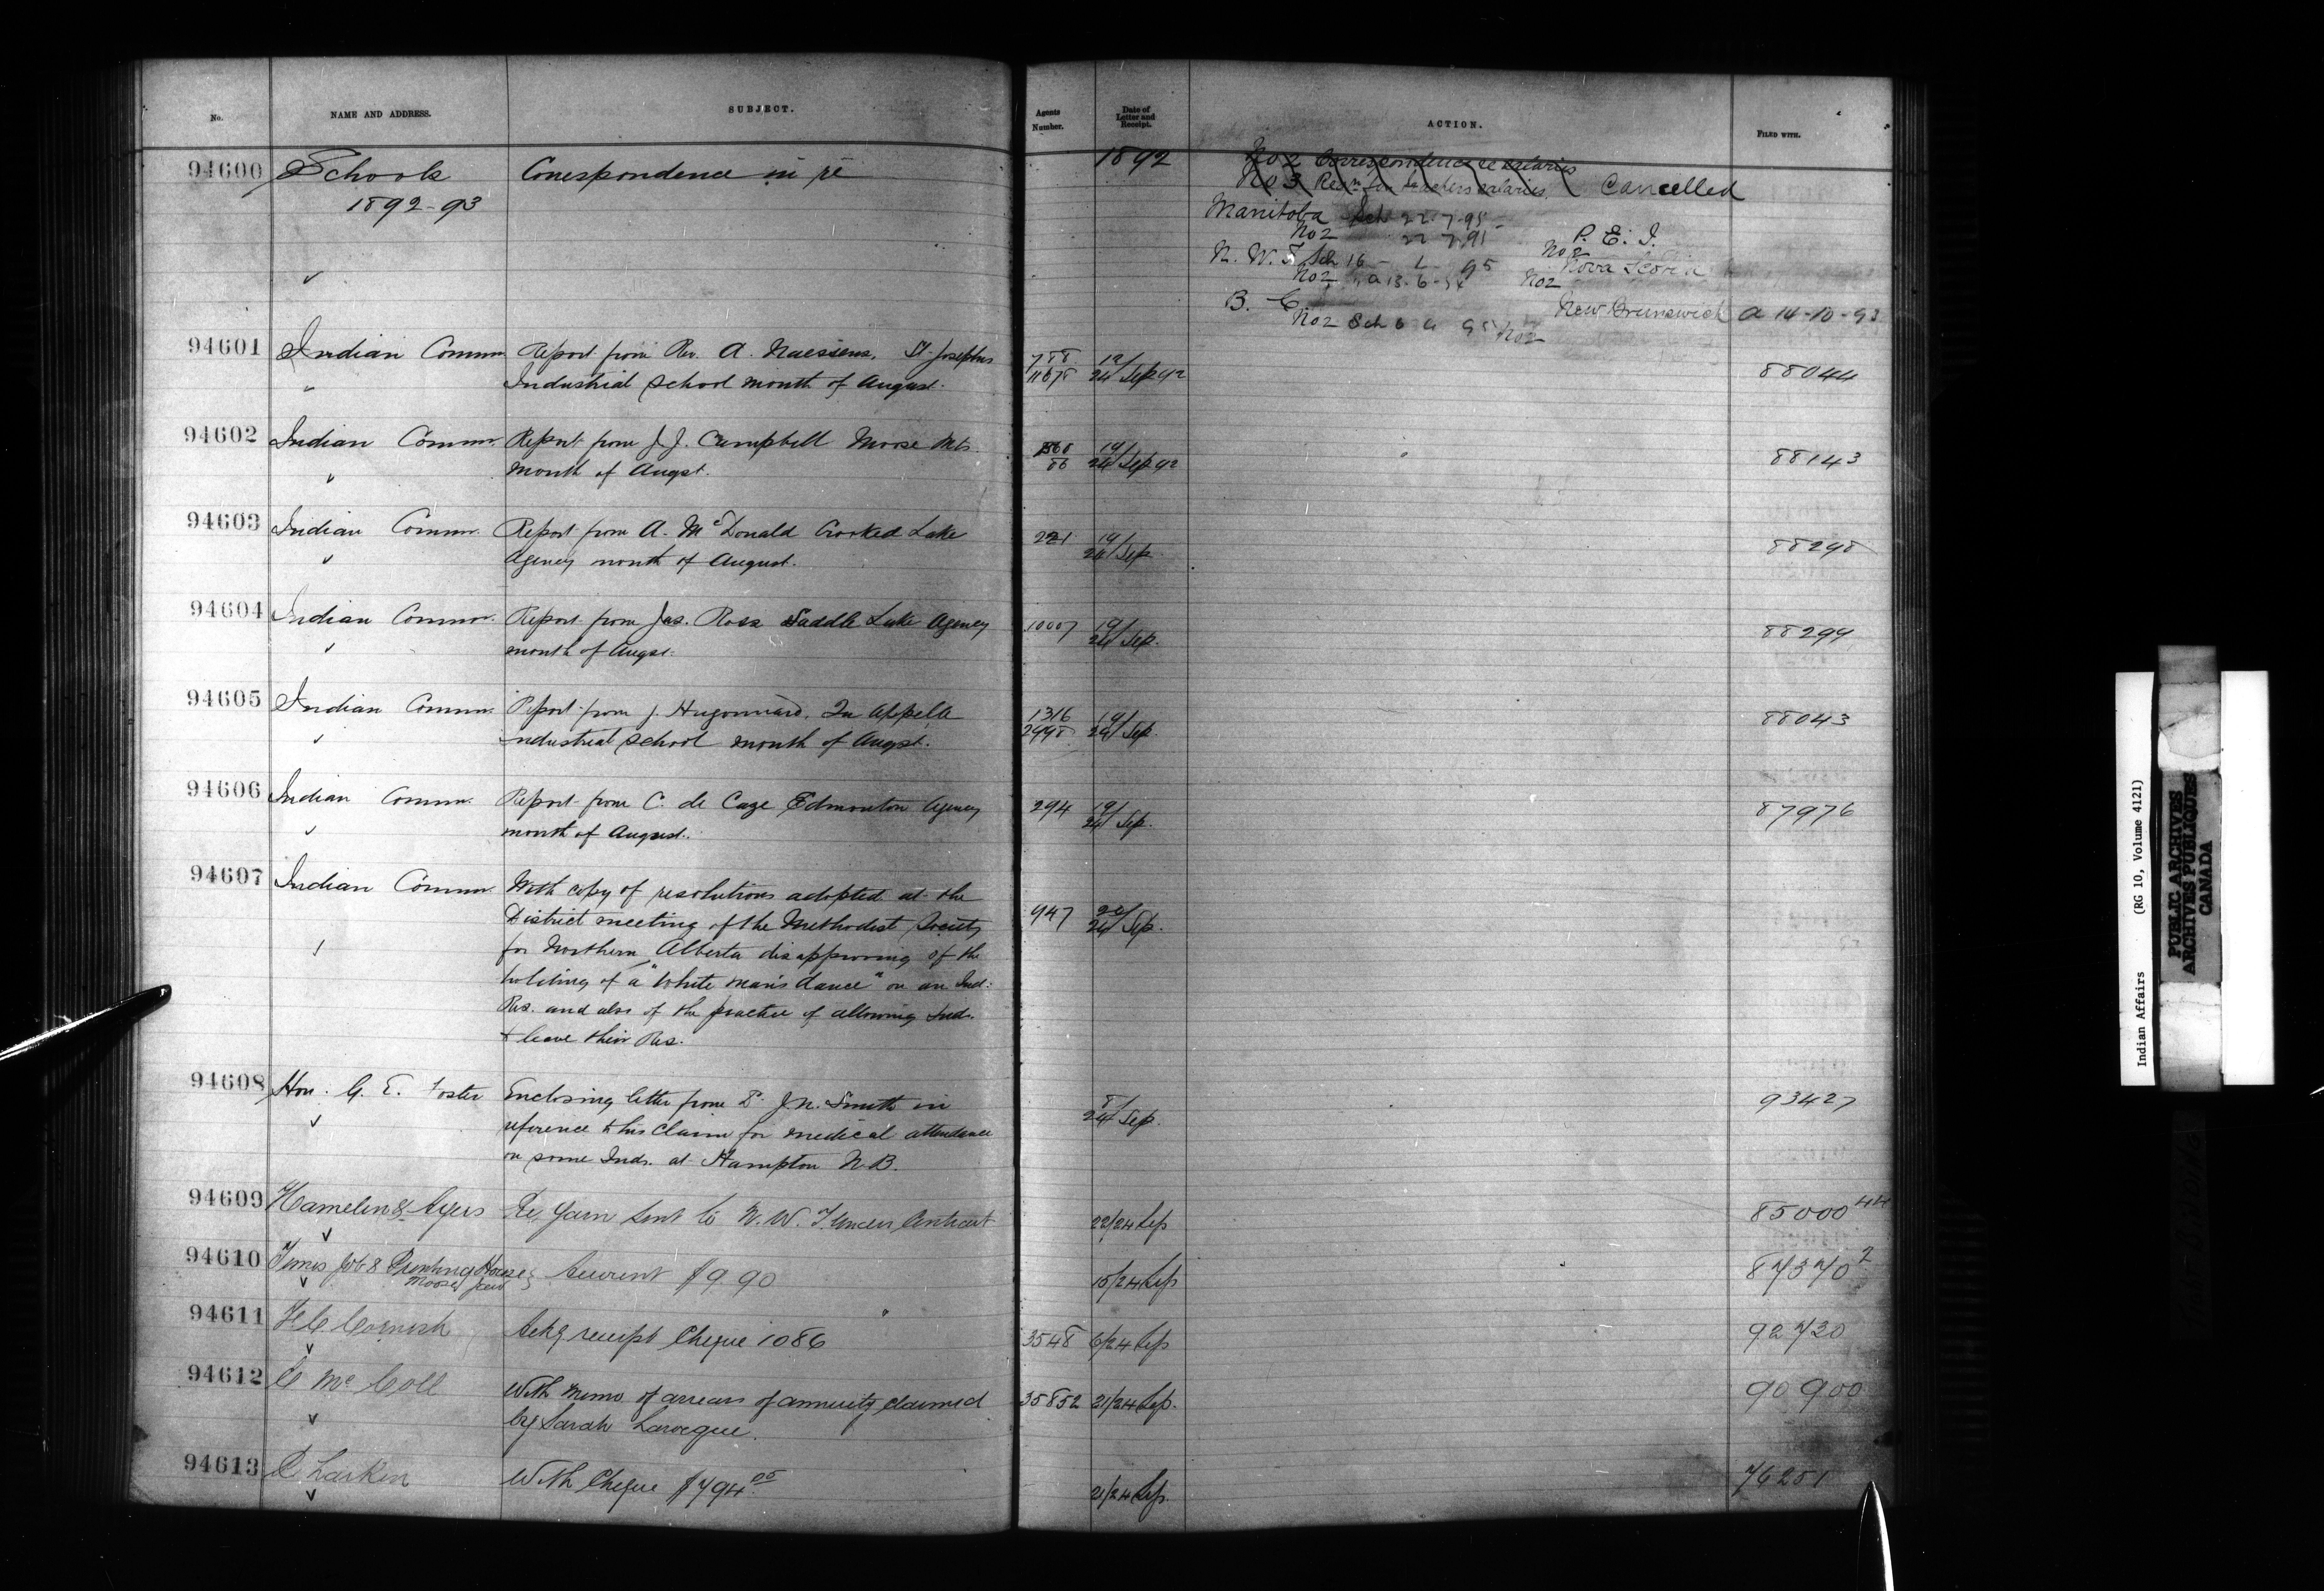 No.
NAME AND ADDRESS.
SUBJECT.
Agents
Number.
Date of
Letter and
Receipt.
ACTION.
FILED WITH.
94600
Schools
1892-93
Correspondence in re
1892
No 2 Correspondence re salaries
No 3 teachers salaries Cancelled
Manitoba Sch 22-7-95
No 2 22 7 95
P. E. I.
No 2
N. W. T Sch 16 - 95
No 2
Nova Scotia
No 2
B. C.
No 2 Sch 6
New Brunswick a 14-10-93
No 2
94601 Indian Commr Report from Rev. A. Naessens, St. Josephs
Industrial School month of August.
788
12/24 Sep 92
88044
94602 Indian Commr. Report from J. J. Campbell Moose Mts.
month of Augst.
19/24 Sep 92
88143
94603 Indian Commr. Report from A. McDonald Crooked Lake
Agency month of August.
221
19/24 Sep
88298
94604 Indian Commr. Report from Jas. Ross Saddle Lake Agency
month of Augst.
10007
19/24 Sep.
88299
94605 Indian Commr. Report from J. Hugonnard, Qu Appelle
industrial school month of Augst.
1316
2998
19/24 Sep
88043
94606 Indian Commr. Report from C. de Caze Edmonton Agency
month of August.
294
19/24 Sep.
87976
94607 Indian Commr. With copy of resolutions adopted at the
District meeting of the Methodist Society
for Northern Alberta disapproving of the
holding of a "White man's dance" on an Ind:
Res. and also of the practice of allowing Inds.
to leave their Res.
947
20/24 Sep.
94608 Hon. G. E. Foster Enclosing letter from D. J. N. Smith in
reference to his claim for medical attendance
on some Inds. at Hampton N. B.
8/24 Sep.
93427
94609 Hamelin & Ayers Re yarn sent to N. W. T. under Contract
22/24 Sep
85000 44
94610 Times Job & Printing House
Moose Jaw
Account $9.90
15/24 Sep
87370 2
94611 F C Cornish Ackg receipt Cheque 1086
3548
6/24 Sep
92730
94612 E Mc Coll With memo of arrears of annuity claimed
by Sarah Larocque.
35852
21/24 Sep.
90900
94613 C Larkin With Cheque $794.05
21/24 Sep.
76251
Indian Affairs (RG 10, Volume 4121)
PUBLIC ARCHIVES
ARCHIVES PUBLIQUES
CANADA